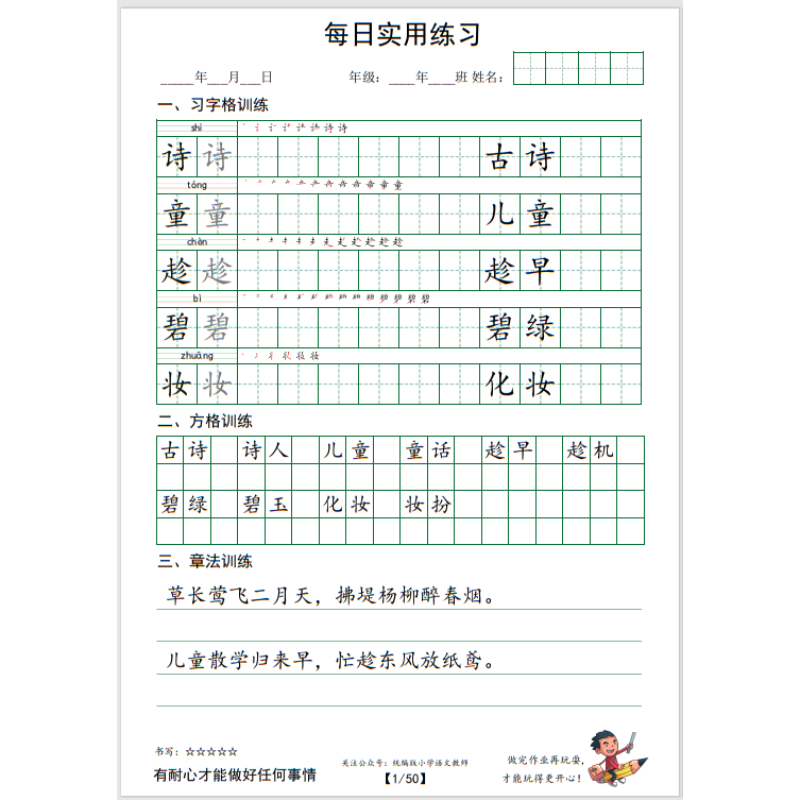 每日实用练习
_____年___月___日 年级：____年____班 姓名：
一、习字格训练
shī
诗 诗 古 诗
tóng
童 童 儿 童
chèn
趁 趁 趁 早
bì
碧 碧 碧 绿
zhuāng
妆 妆 化 妆
二、方格训练
古诗 诗人 儿童 童话 趁早 趁机
碧绿 碧玉 化妆 妆扮
三、章法训练
草长莺飞二月天，拂堤杨柳醉春烟。
儿童散学归来早，忙趁东风放纸鸢。
书写：☆☆☆☆☆
有耐心才能做好任何事情
关注公众号：统编版小学语文教师
【1/50】
做完作业再玩耍，
才能玩得更开心！